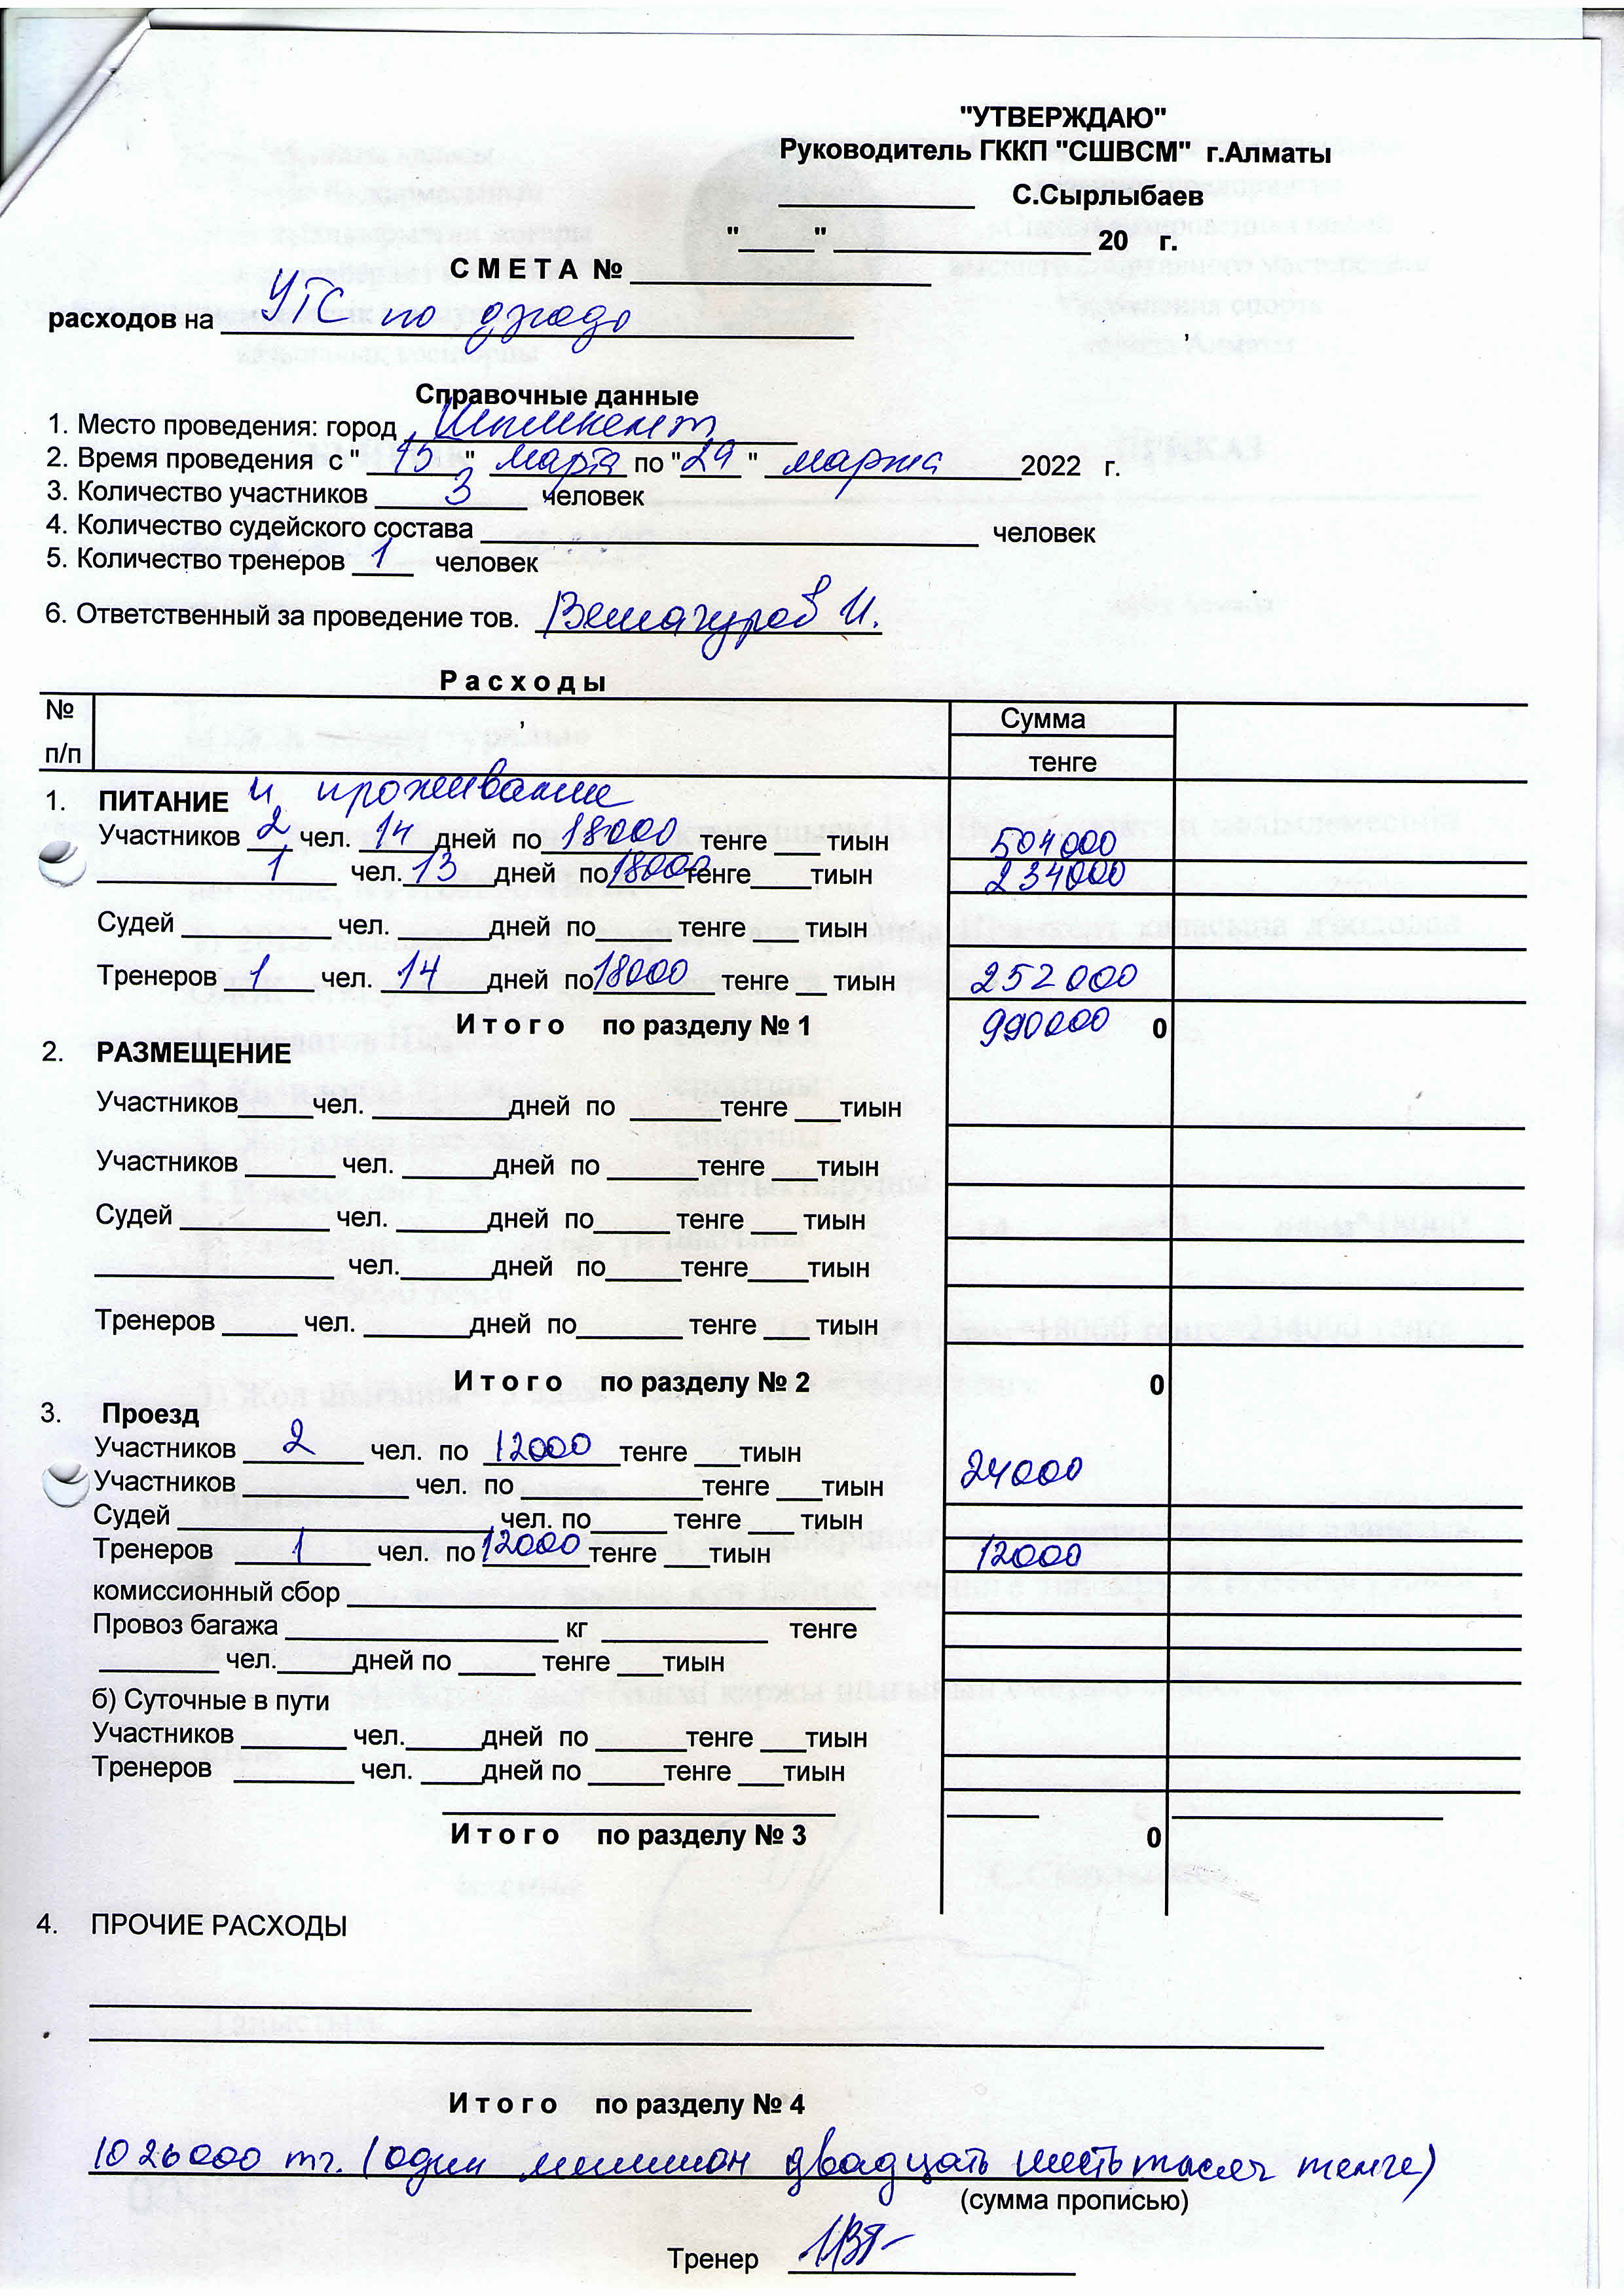 "УТВЕРЖДАЮ"
Руководитель ГККП "СШВСМ" г.Алматы
____________ С.Сырлыбаев
"_____" ________________ 20 г.
С М Е Т А №
расходов на УТС по дзюдо
Справочные данные
1. Место проведения: город Шымкент
2. Время проведения с " 15 " марта по " 29 " марта 2022 г.
3. Количество участников 3 человек
4. Количество судейского состава ____________ человек
5. Количество тренеров 1 человек
6. Ответственный за проведение тов. И.
Р а с х о д ы
№ п/п Сумма
тенге
1. ПИТАНИЕ и проживание
Участников 2 чел. 14 дней по 18000 тенге ___ тиын 504000
1 чел. 13 дней по 18000 тенге ____ тиын 234000
Судей ________ чел. ______ дней по _____ тенге ___ тиын
Тренеров 1 чел. 14 дней по 18000 тенге __ тиын 252000
И т о г о по разделу № 1 990000 0
2. РАЗМЕЩЕНИЕ
Участников _____ чел. _________ дней по ______ тенге ___ тиын
Участников ______ чел. ______ дней по ______ тенге ___ тиын
Судей __________ чел. ______ дней по _____ тенге ___ тиын
________________ чел. ______ дней по _____ тенге ____ тиын
Тренеров _____ чел. _______ дней по _______ тенге ___ тиын
И т о г о по разделу № 2 0
3. Проезд
Участников 2 чел. по 12000 тенге ___ тиын 24000
Участников ___________ чел. по ____________ тенге ___ тиын
Судей _____________________ чел. по _____ тенге ___ тиын
Тренеров 1 чел. по 12000 тенге ___ тиын 12000
комиссионный сбор ___________________________________
Провоз багажа __________________ кг ___________ тенге
________ чел. _____ дней по _____ тенге ___ тиын
б) Суточные в пути
Участников _______ чел. _____ дней по ______ тенге ___ тиын
Тренеров ________ чел. ____ дней по _____ тенге ___ тиын
И т о г о по разделу № 3 0
4. ПРОЧИЕ РАСХОДЫ
И т о г о по разделу № 4
1026000 тг. (один миллион двадцать шесть тысяч тенге)
(сумма прописью)
Тренер